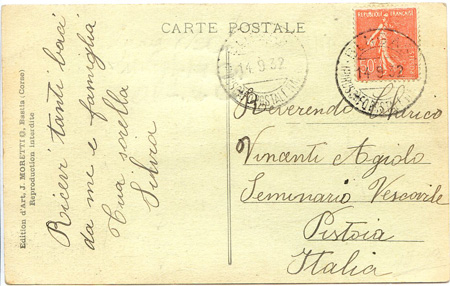 CARTE POSTALE
Edition d'Art. J. MORETTI Q. Bastia (Corse)
Reproduction interdite
Ricevi tanti baci
da me e famiglia
tua sorella
Silvia
REPUBLIQUE FRANÇAISE
50c
14.9.32
14.9.32
Reverendo
Vincenti Agiolo
Seminario Vescovile
Pistoia
Italia